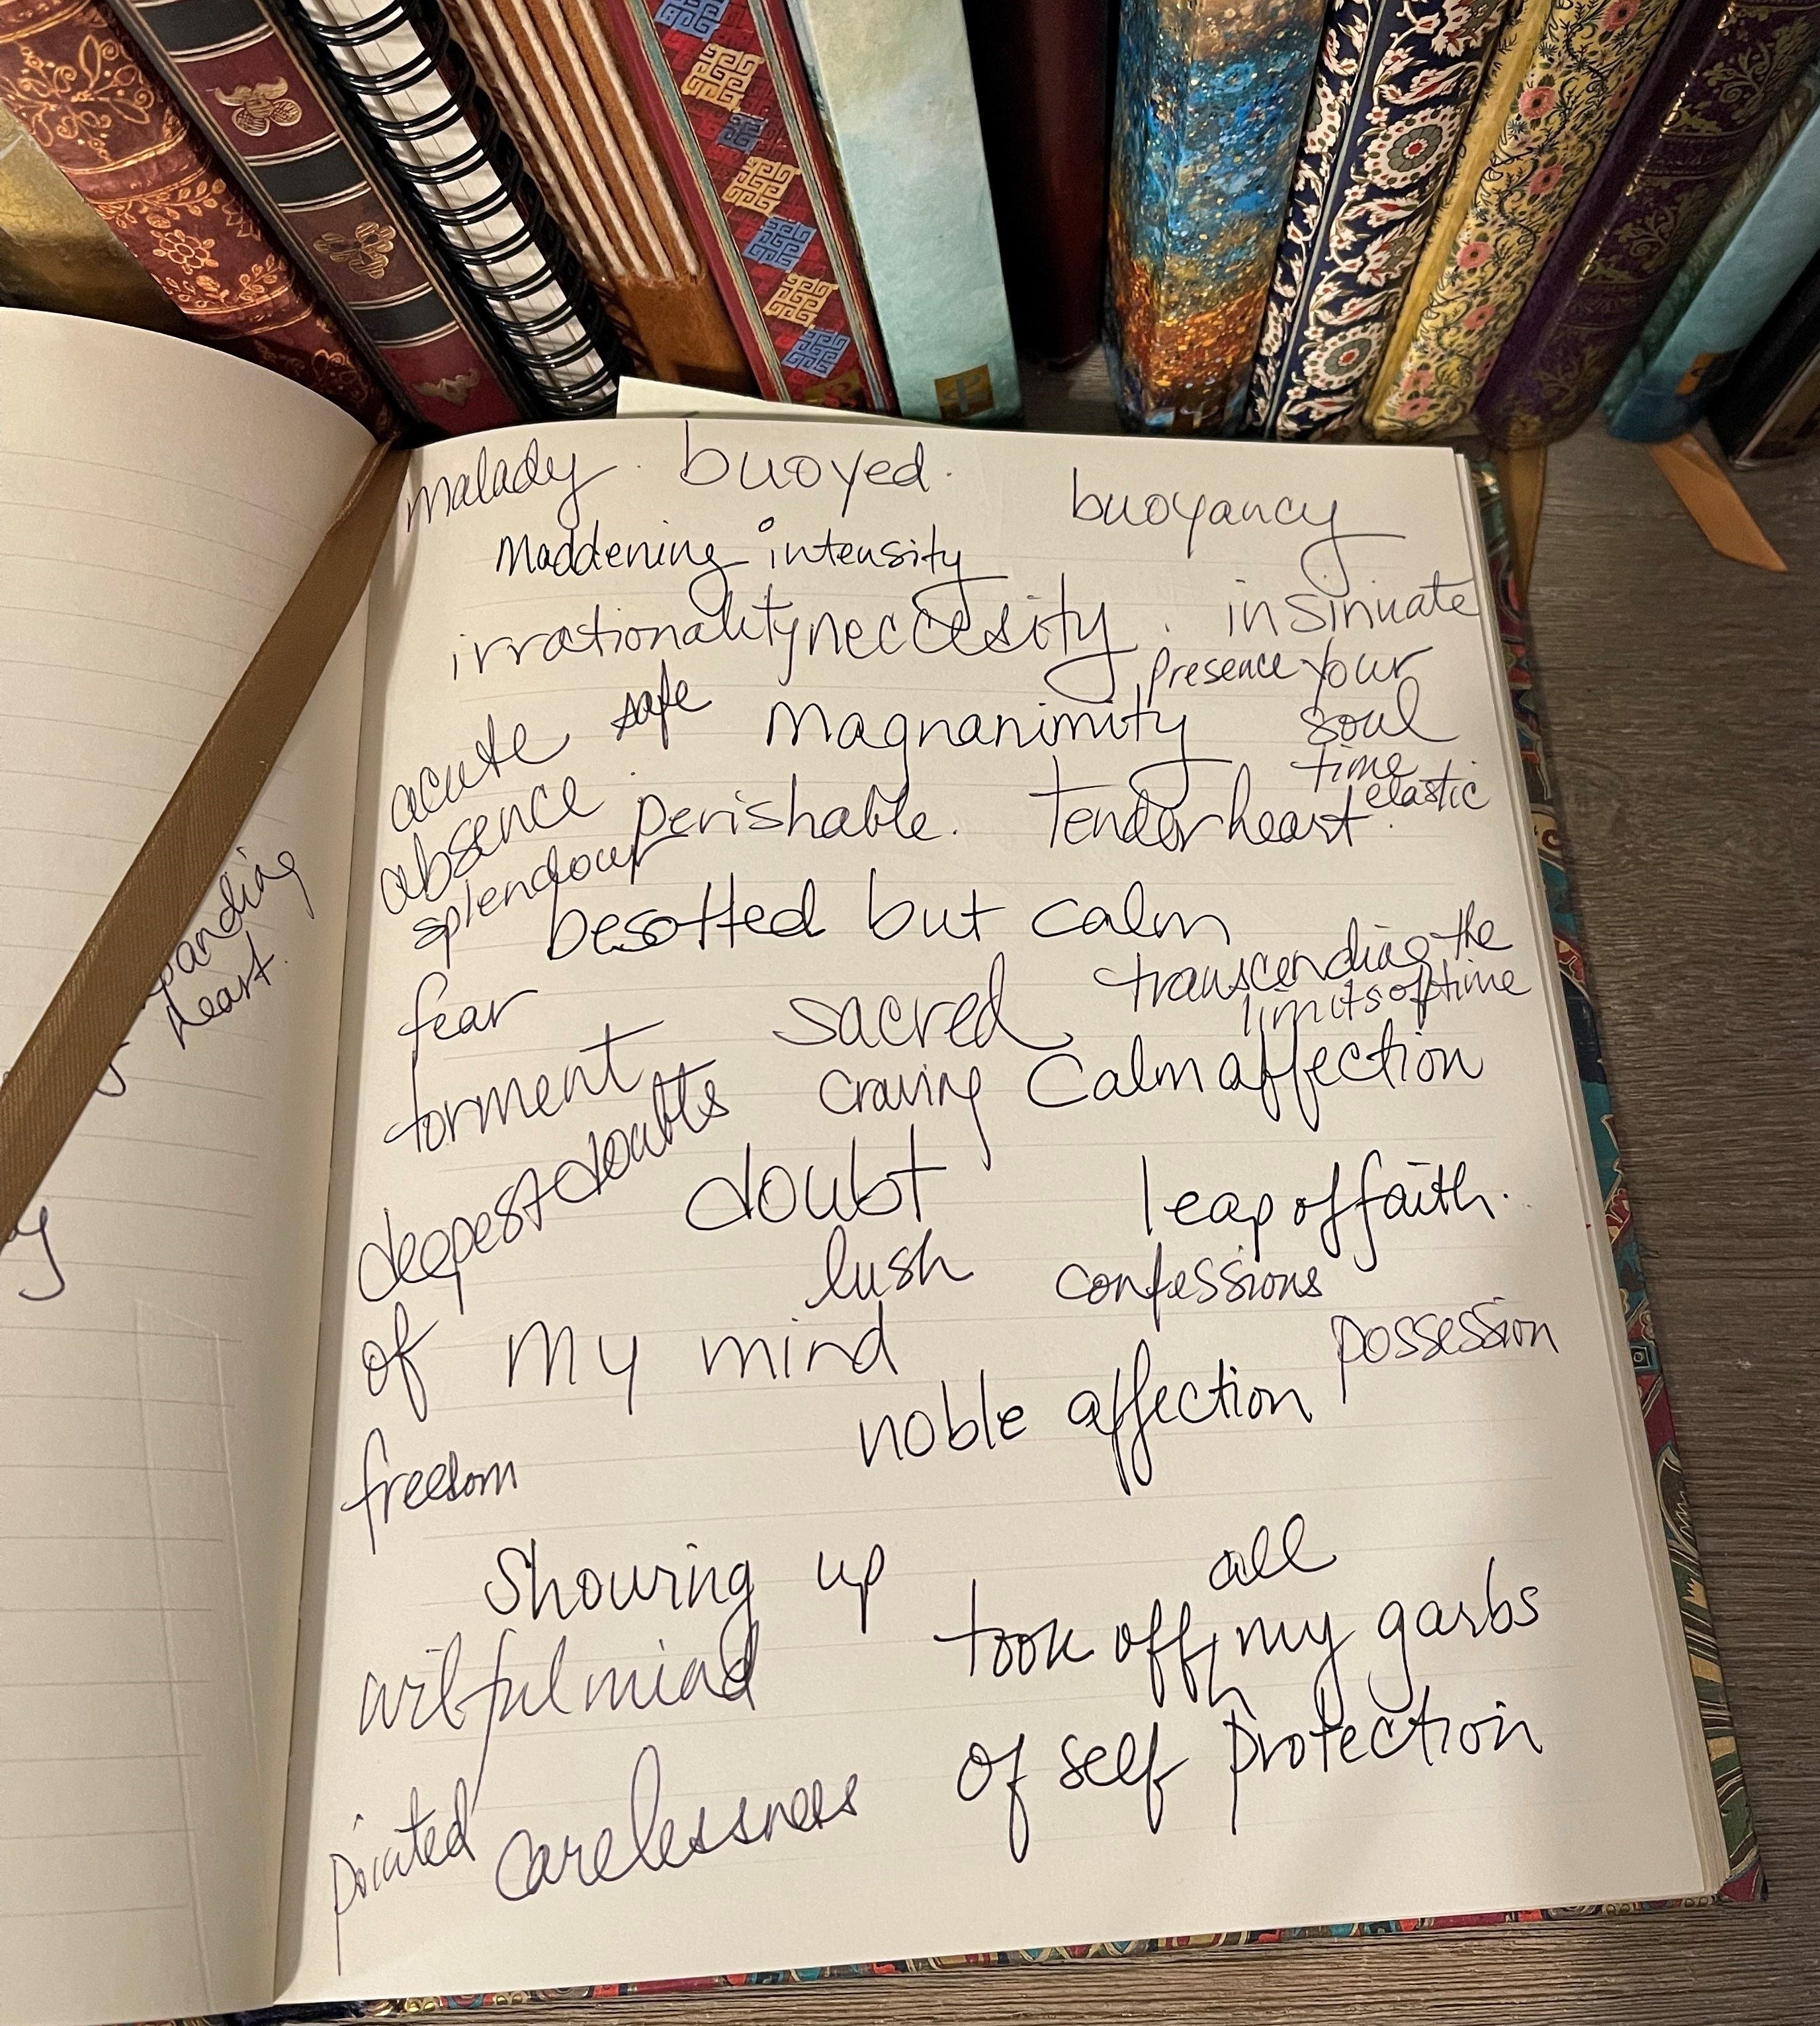 malady. buoyed. buoyancy
Maddening intensity
irrationality neccesity. insinuate
presence your
acute safe Magnanimity soul
time
absence perishable. Tender heart elastic
splendour
besotted but calm
fear sacred transcending the
limits of time
torment craving Calm affection
deepest doubts doubt leap of faith.
lush confessions
of my mind possession
noble affection
freedom
Showing up all
wilful mind took off my garbs
pointed carelessness of self protection
panding
heart.
y